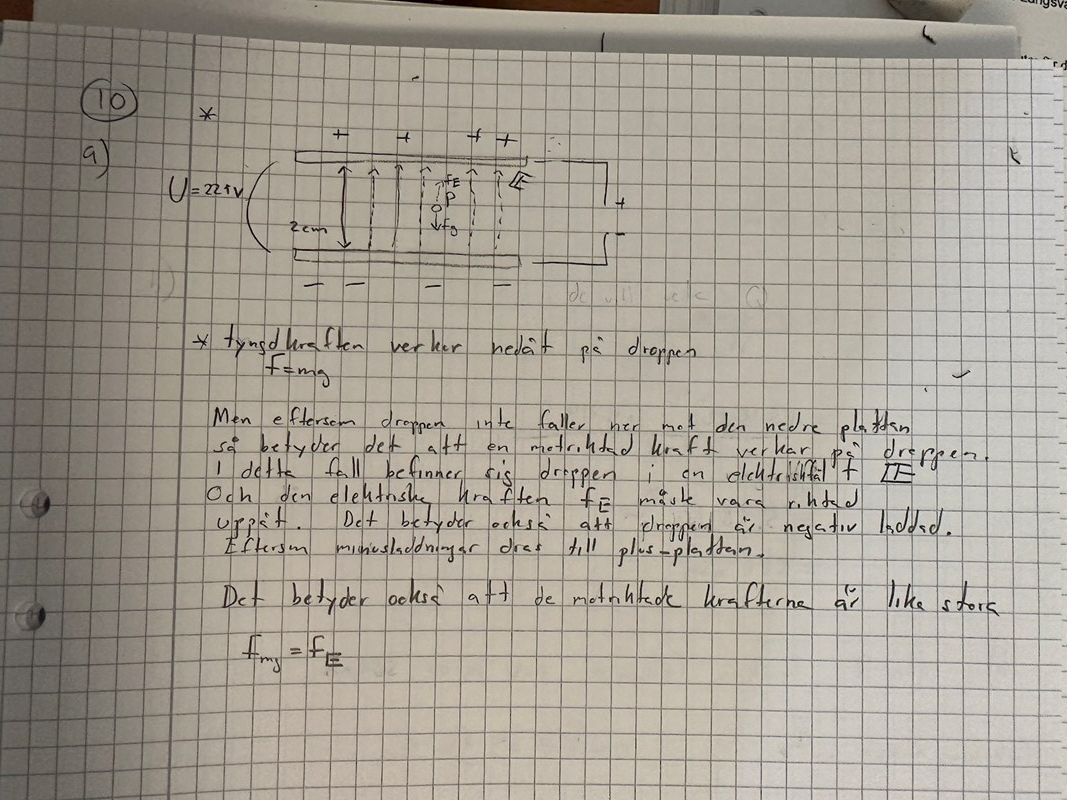 10
*
a)
+ + + +
U = 221V
2cm
fE
p
fg
E
+
-
- - - -
* tyngdkraften verkar nedåt på droppen
f=mg
Men eftersom droppen inte faller ner mot den nedre plattan
så betyder det att en motriktad kraft verkar på droppen.
I detta fall befinner sig droppen i en elektriskt fält E
Och den elektriska kraften fE måste vara riktad
uppåt. Det betyder också att droppen är negativ laddad.
Eftersom minusladdningar dras till plus-plattan.
Det betyder också att de motriktade krafterna är lika stora
fmg = fE